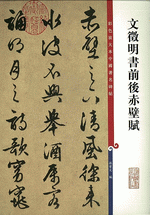 文徵明書前後赤壁賦
彩色放大本中國著名碑帖
赤壁之下清風徐來
水波不興舉酒屬客
誦明月之詩歌窈窕